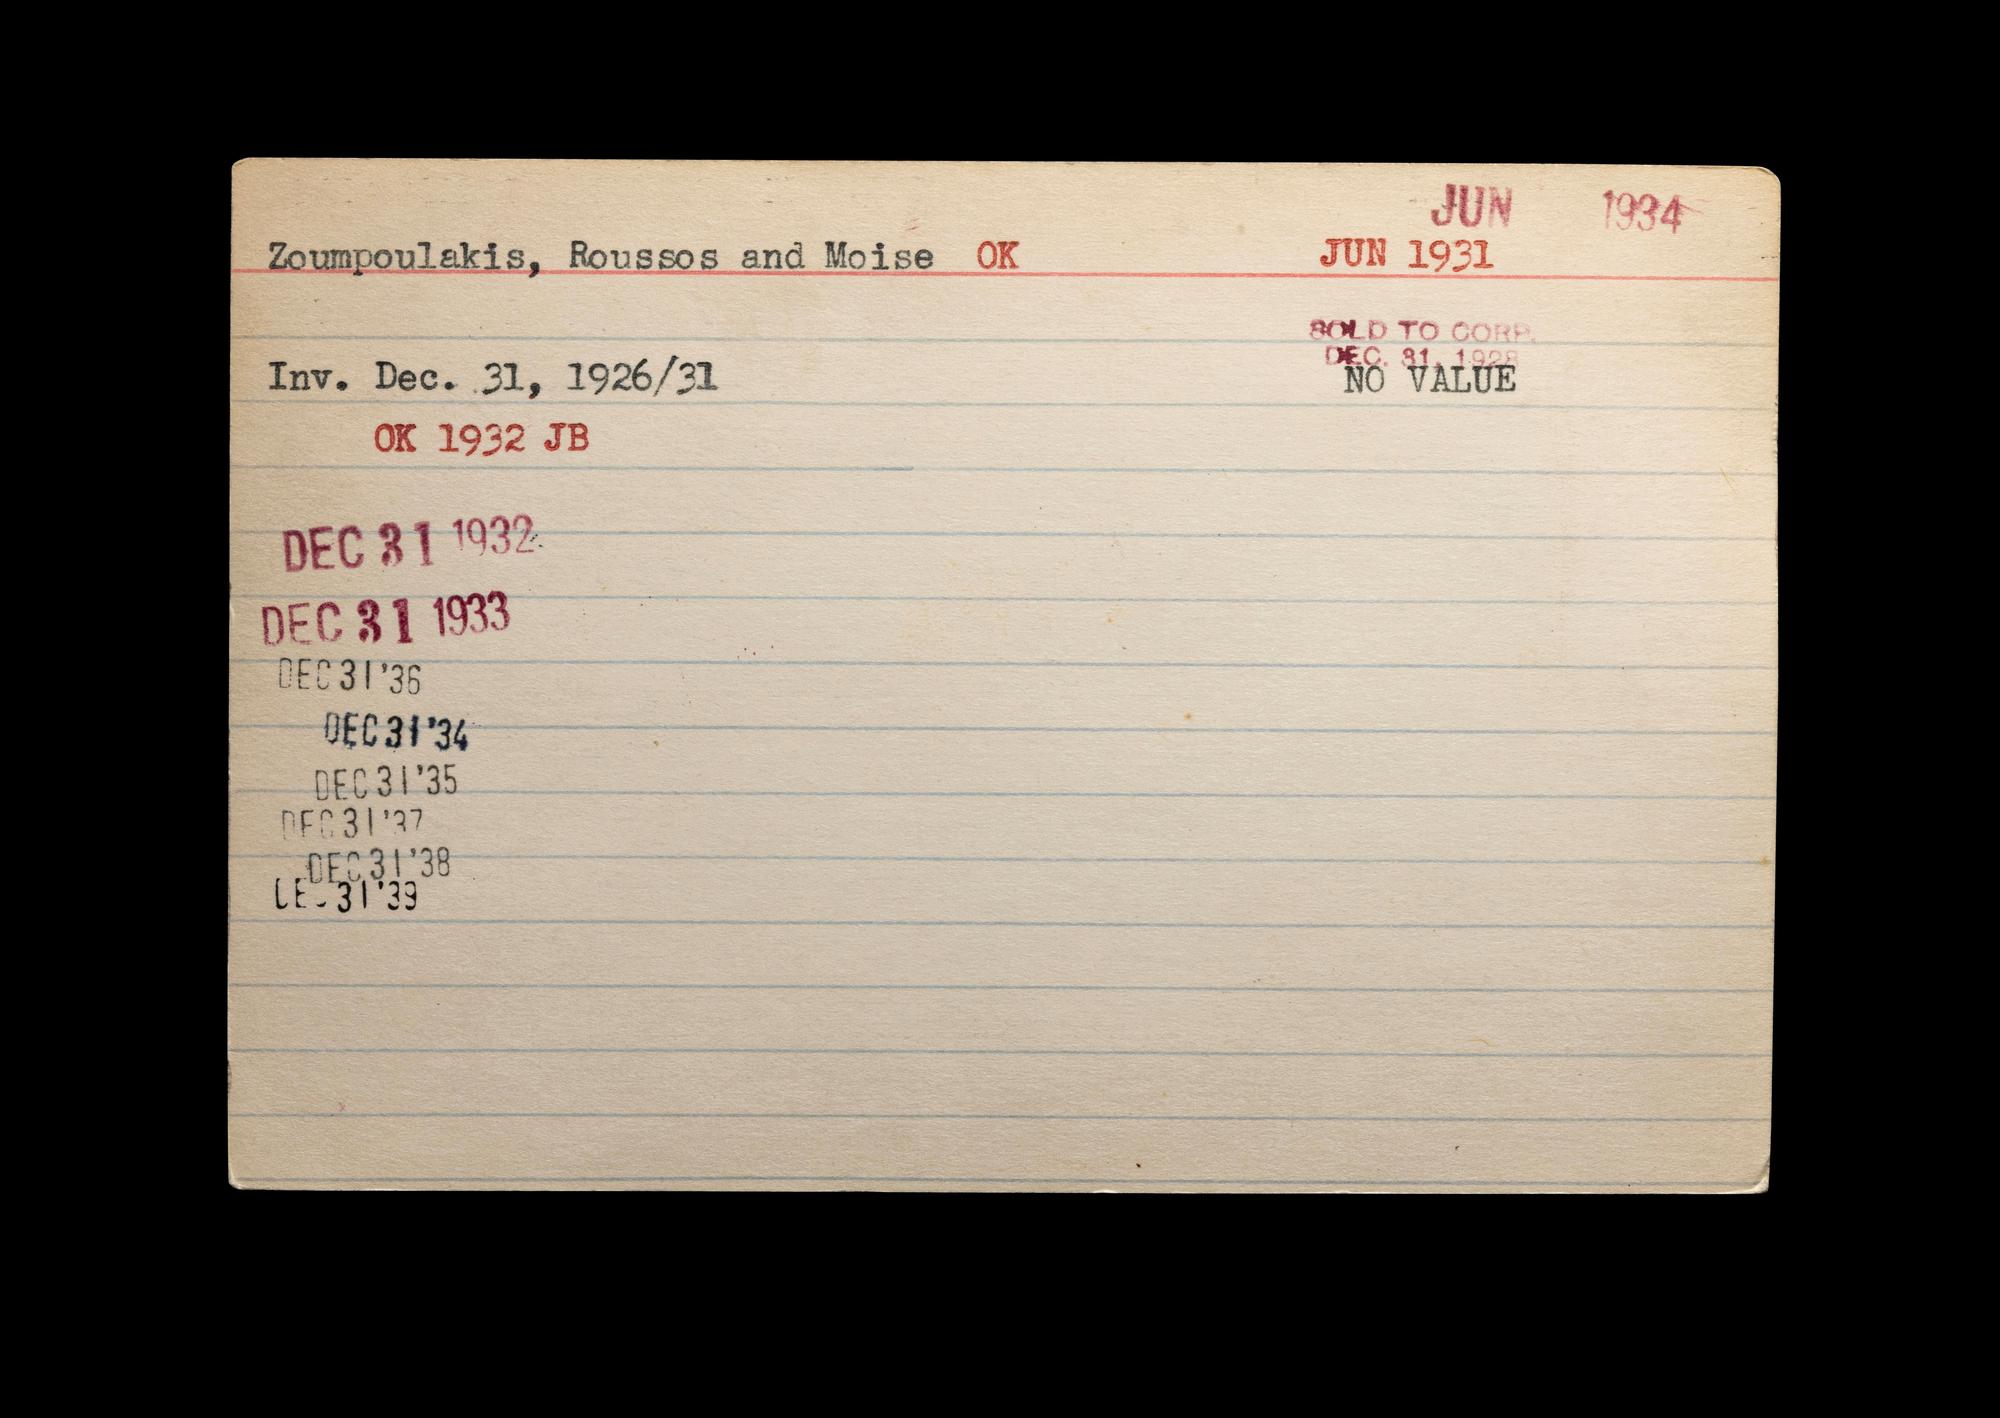 JUN 1934
Zoumpoulakis, Roussos and Moise OK JUN 1931
SOLD TO CORP.
DEC. 31, 1928
Inv. Dec. 31, 1926/31 NO VALUE
OK 1932 JB
DEC 31 1932
DEC 31 1933
DEC 31 '36
DEC 31 '34
DEC 31 '35
DEC 31 '37
DEC 31 '38
DEC 31 '39